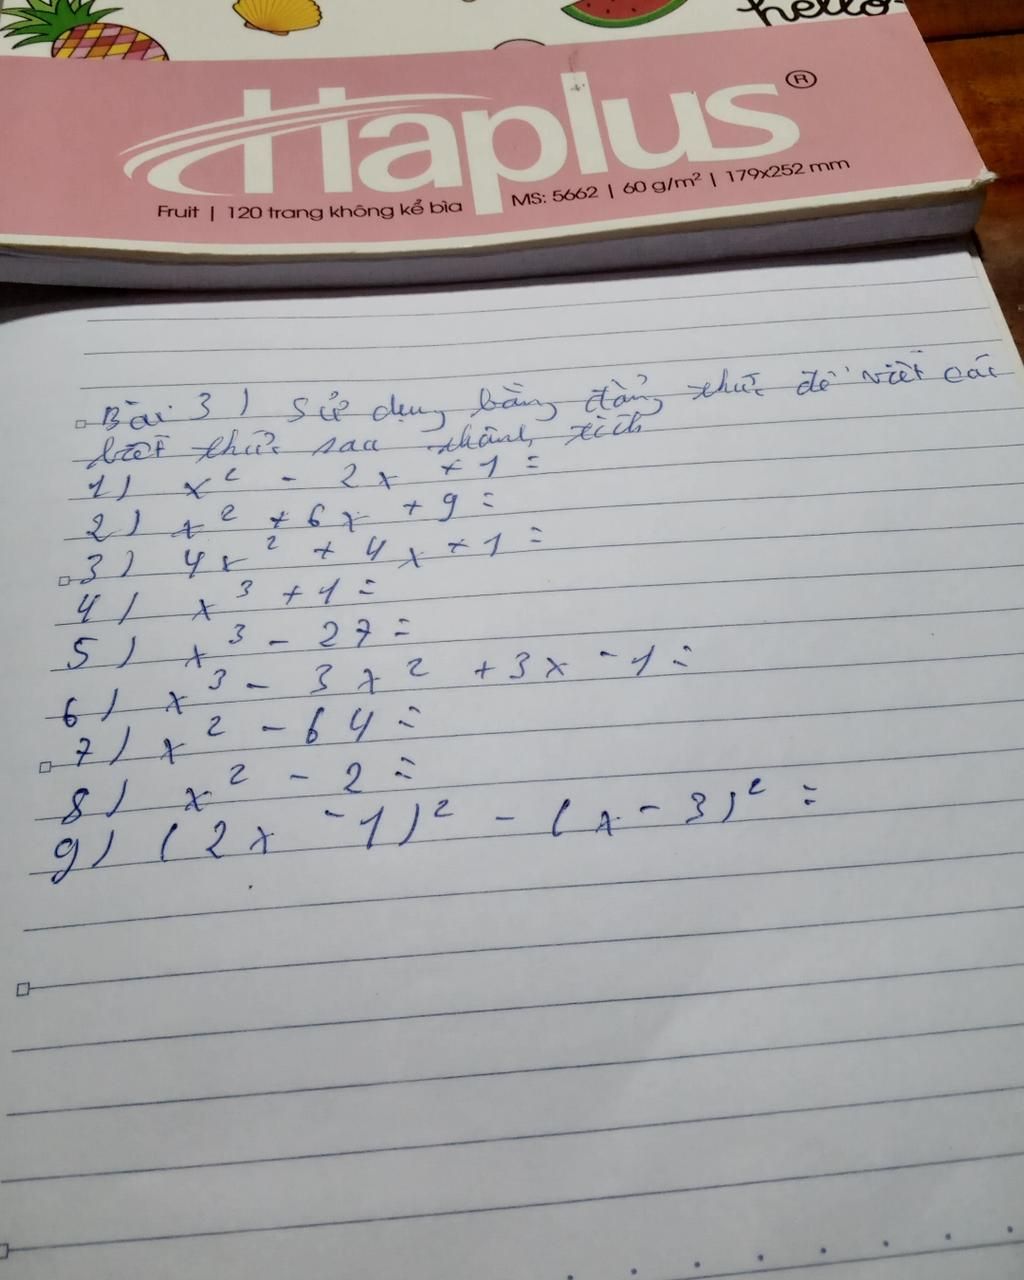 hello
Haplus®
Fruit | 120 trang không kể bìa
MS: 5662 | 60 g/m² | 179x252 mm
Bài 3) Sử dụng hằng đẳng thức để viết các
biết thức sau thành tích
1) x² - 2x + 1 =
2) x² + 6x + 9 =
3) 4x² + 4x + 1 =
4) x³ + 1 =
5) x³ - 27 =
6) x³ - 3x² + 3x - 1 =
7) x² - 64 =
8) x² - 2 =
9) (2x - 1)² - (x - 3)² =